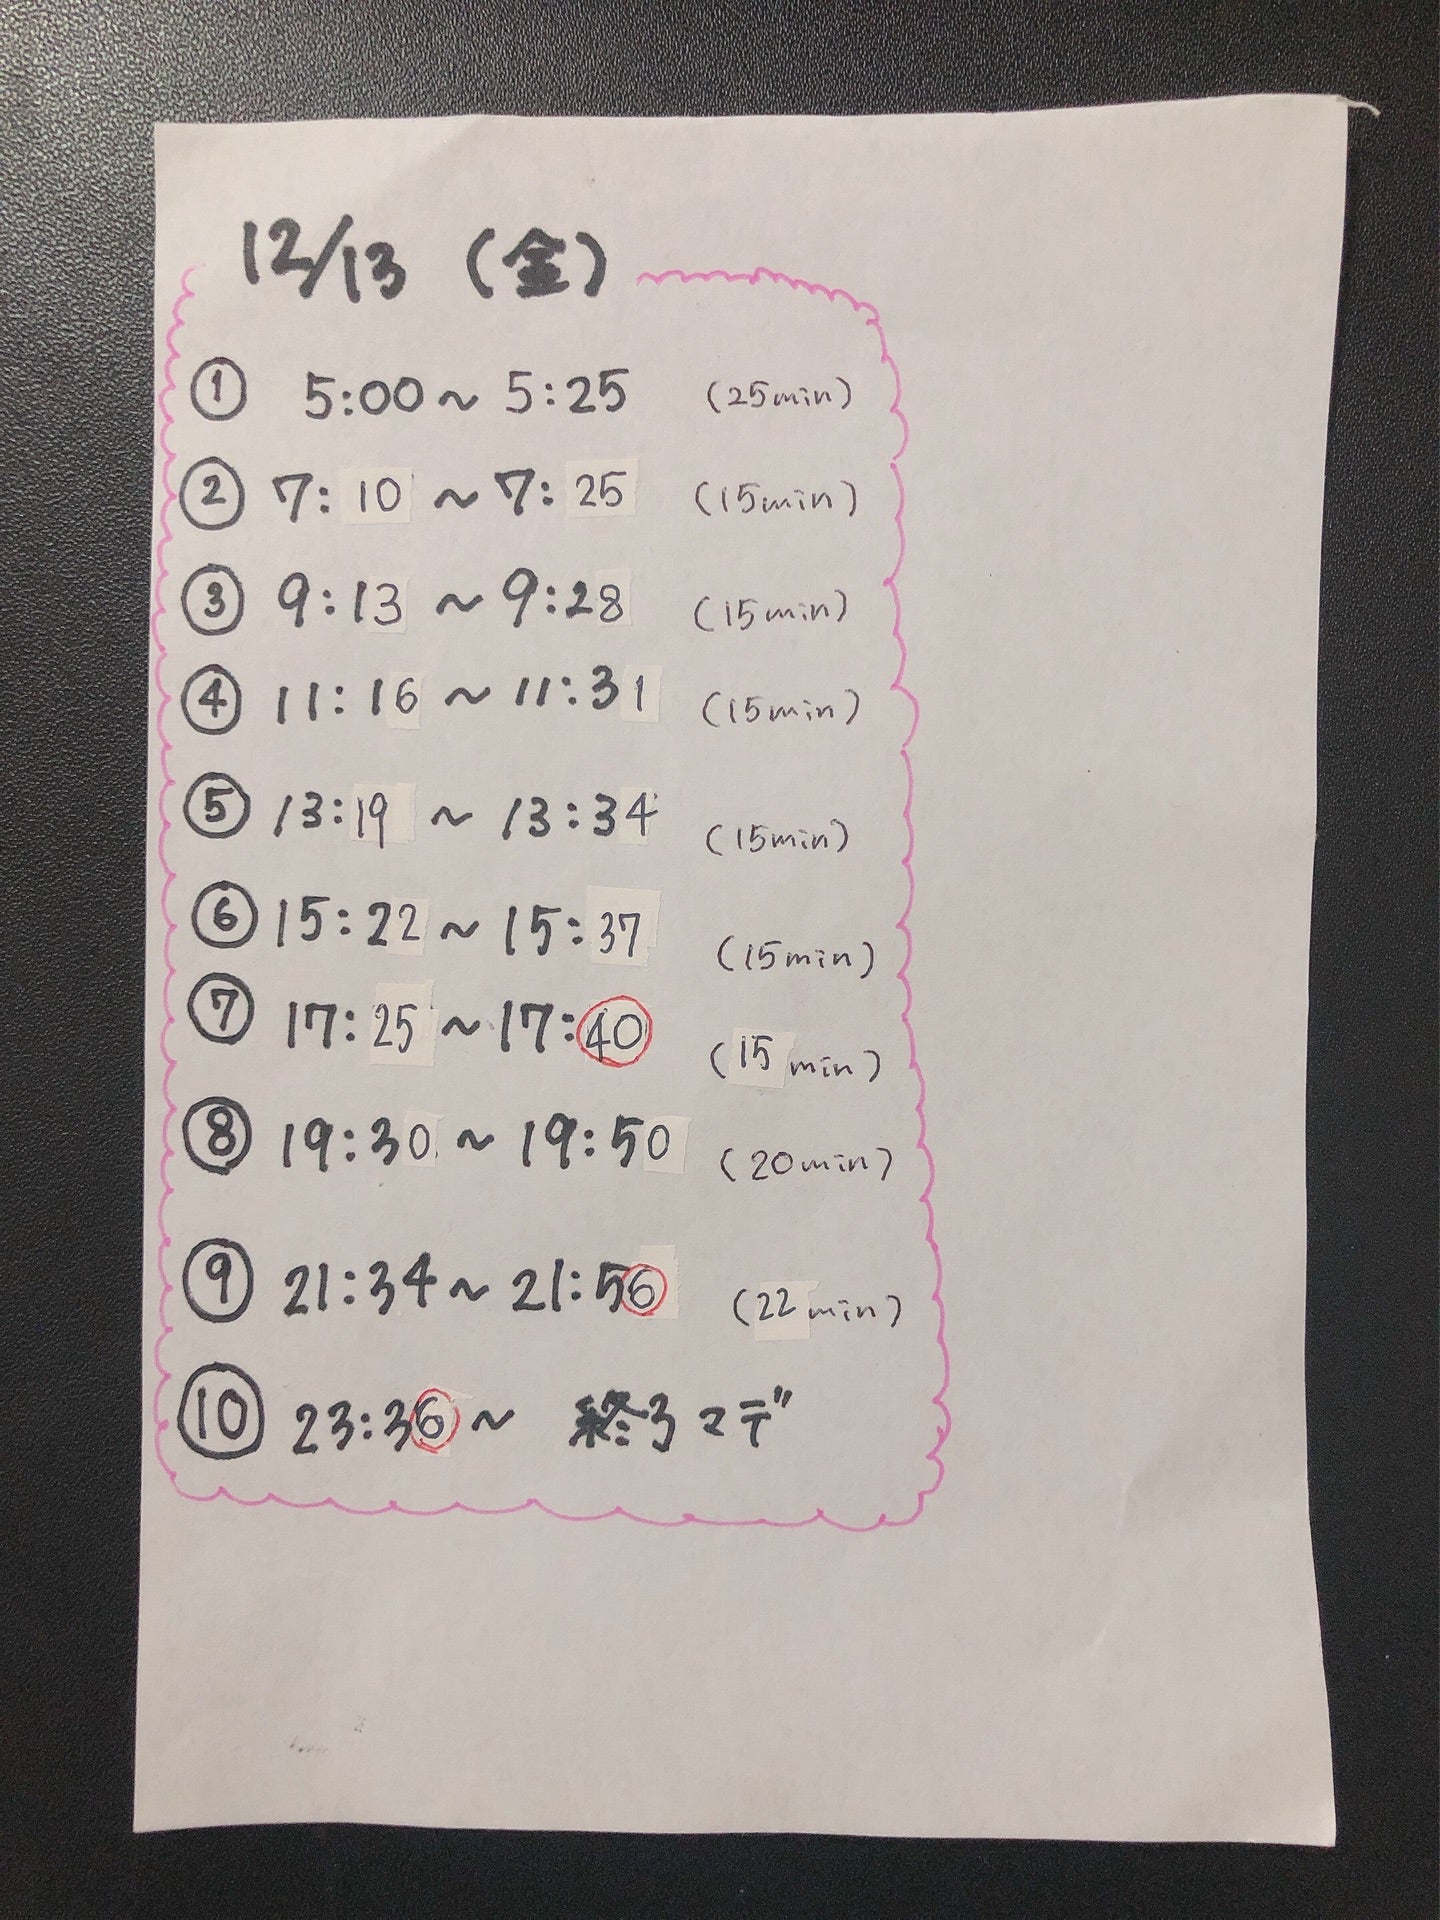 12/13 (金)
① 5:00~5:25 (25min)
② 7:10~7:25 (15min)
③ 9:13~9:28 (15min)
④ 11:16~11:31 (15min)
⑤ 13:19~13:34 (15min)
⑥ 15:22~15:37 (15min)
⑦ 17:25~17:40 (15min)
⑧ 19:30~19:50 (20min)
⑨ 21:34~21:56 (22min)
⑩ 23:36~ 終了マデ